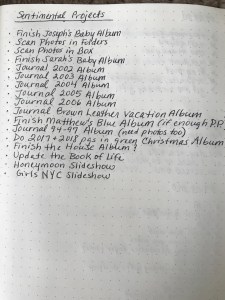 Sentimental Projects
· Finish Joseph's Baby Album
· Scan Photos in Folders
· Scan Photos in Box
· Finish Sarah's Baby Album
· Journal 2002 Album
· Journal 2003 Album
· Journal 2004 Album
· Journal 2005 Album
· Journal 2006 Album
· Journal Brown Leather Vacation Album
· Finish Matthew's Blue Album (if enough P.P.
· Journal 94-97 Album (need photos too)
· Do 2017 & 2018 pgs in green Christmas Album
· Finish the House Album!
· Update the Book of Life
· Honeymoon Slideshow
· Girls NYC Slideshow